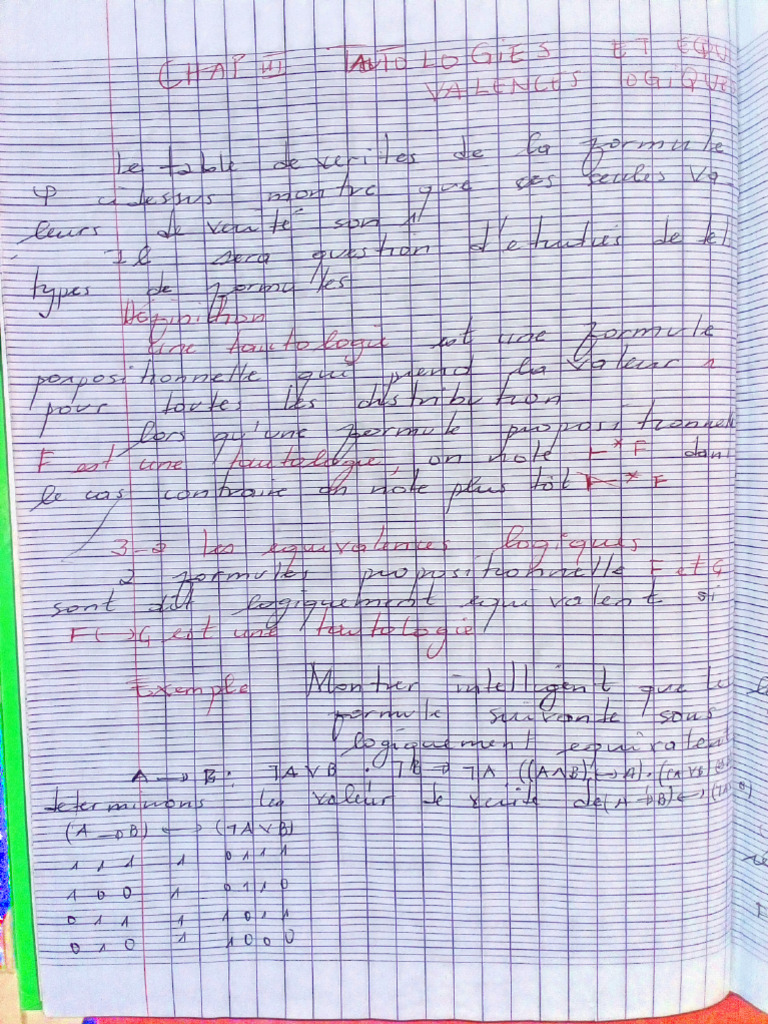 CHAP III TAUTOLOGIES ET EQUI
VALENCES LOGIQUES
Le table de verites de la formule
φ cidessus montre que ses seules va
leurs de verité son 1
Il sera question d'etudies de tel
types de formules
Définition
Une tautologie est une formule
porpositionnelle qui prend la valeur 1
pour toutes les distribution
lors qu'une formule propositionnell
F est une tautologie, on note ⊢* F dan
le cas contraire on note plus tôt ⊬* F
3-2 Les equivalences logiques
2 formules propositionnelle F et G
sont dit logiquement equivalent si
F↔G est une tautologie
Exemple Montrer intelligent que le
formule suivante sons
logiquement equivalent
A → B ; ¬A∨B . ¬B → ¬A ((A∧B) ↔ A).
determinons les valeur de verite de (A→B)↔
(A → B) ↔ (¬A∨B)
1 1 1 1 0 1 1 1
1 0 0 1 0 1 1 0
0 1 1 1 1 0 1 1
0 1 0 1 1 0 0 0